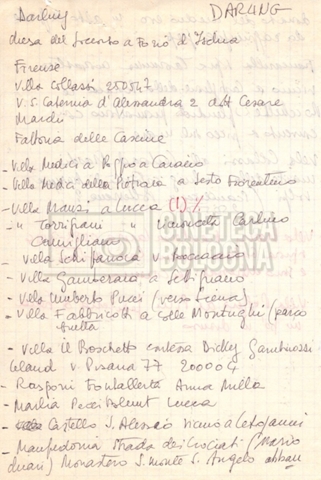 Darling DARLING
chiesa del Soccorso a Forio d'Ischia
Firenze
Villa Collassi 250547
V. S. Caterina d'Alessandra 2 dott Cesare
Mardi
Fattoria delle Cascine
- Villa Medici a Poggio a Caiano
- Villa Medici della Petraia a Sesto Fiorentino
- Villa Mansi a Lucca (1)
- " Torrigiani " Carlino
Camigliano
- Villa Schifanoia V. Boccaccio
- Villa Gamberaia a Settignano
- Villa Umberto Pucci (verso Siena)
- Villa Fabbricotti a Colle Montughi (parco
- Villa il Boschetto contessa Dicky
v. Pisana 77 200004
- Rasponi Anna
- Marlia Pecci Blunt Lucca
- Castello S. Alessio vicino a Letojanni
- Manfredonia strada dei Crociati (Mario
Monastero S. Monte S. Angelo
CINETECA
BOLOGNA